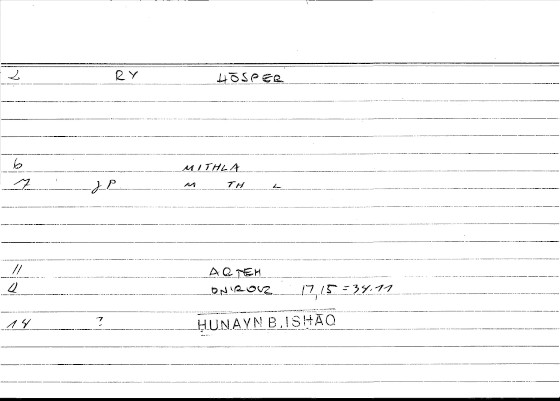 2 RY HŌSPER
6 MITHLA
7 JP M TH L
11 ARTEM
Q ONIROUZ 17,15 = 34.11
14 ? HUNAYN B. ISHAQ